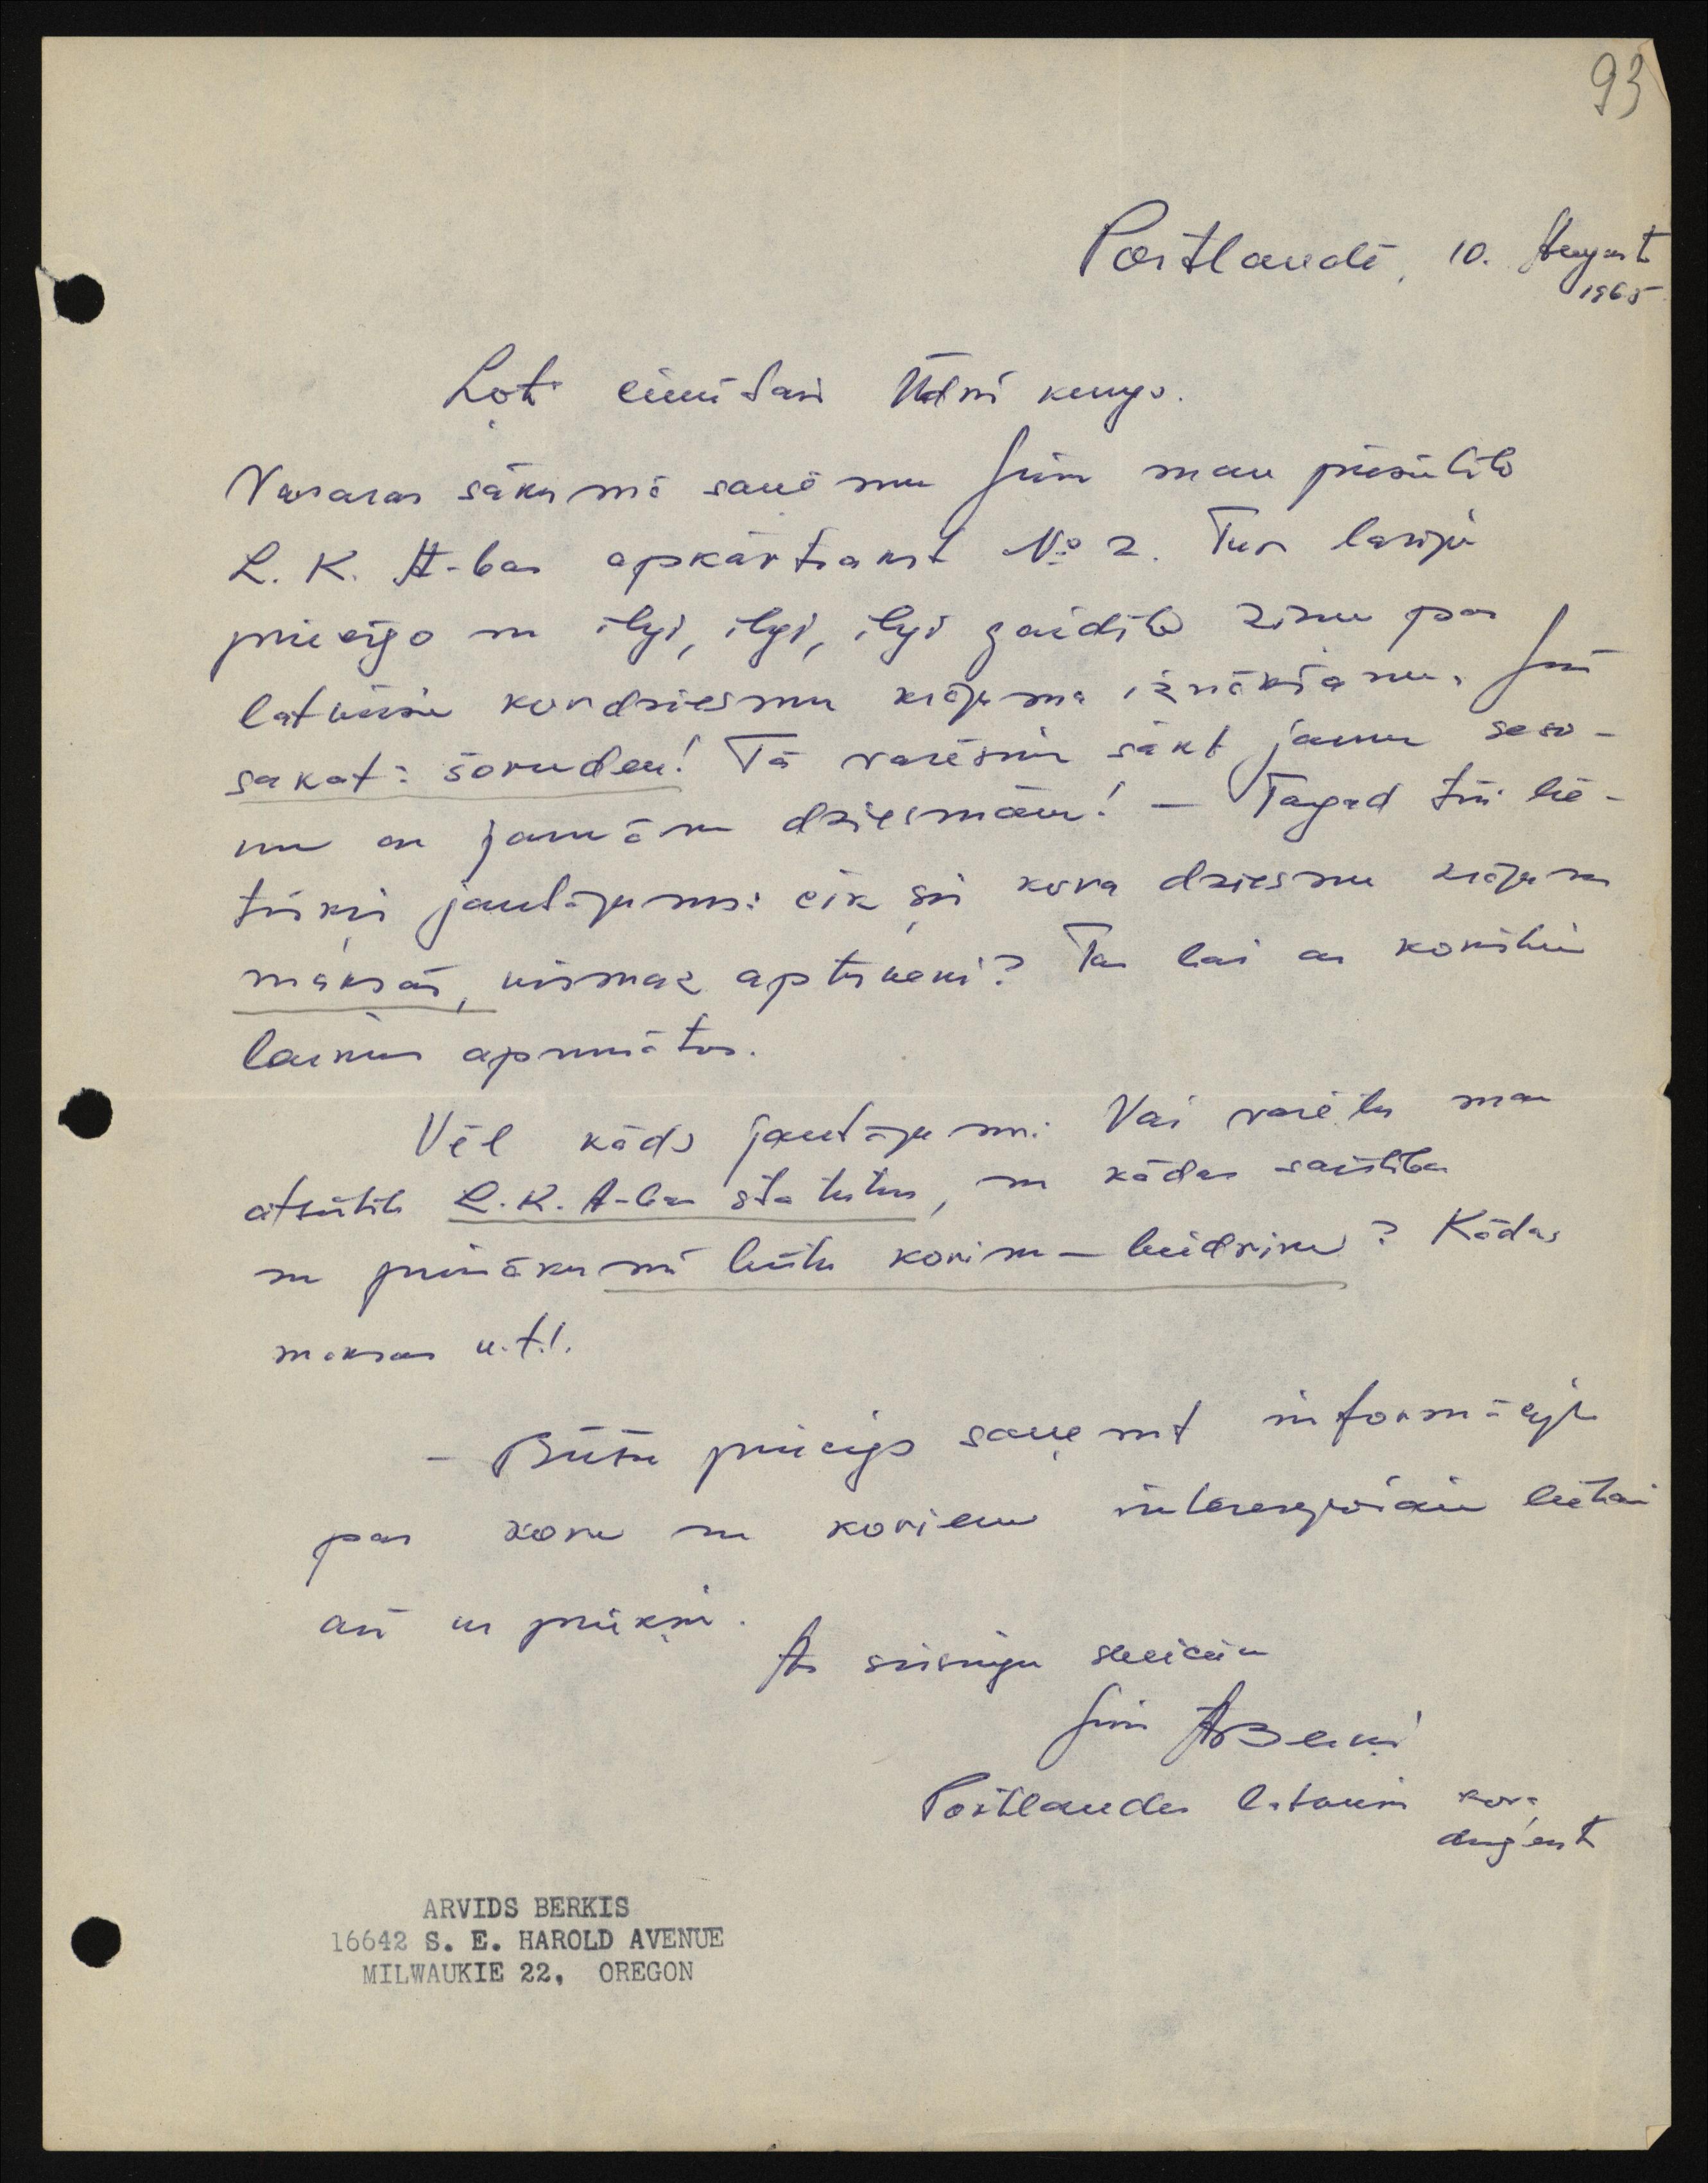 93
Portlandē, 10. August
1965
Ļoti cienītais Ūdri kungs.
Vasaras sākumā saņēmu Jūsu man piesūtīto
L. K. A-bas apkārtrakst № 2. Tur lasīju
priecīgo un ilgi, ilgi, ilgi gaidīto ziņu par
latviešu kordziesmu krājuma iznākšanu. Jūs
sakat: šoruden! Tā varēsim sākt jaunu sezo-
nu ar jaunām dziesmām! — Tagad tīri lie-
tišķis jautājums: cik šis kora dziesmu krājums
maksās, vismaz aptuveni? Tas lai ar koristiem
laikus aprunātos.
Vēl kāds jautājums: Vai varētu man
atsūtīt L. K. A-bas statutus, un kādas saistības
un pienākumi būtu korim — biedrim? Kādas
maksas u.t.t.
— Būšu priecīgs saņemt informāciju
par koru un koriem interesējošām lietām
arī uz priekšu.
Ar sirsnīgu sveicienu
Jūsu ABerķis
Portlandes latviešu kora
diriģents
ARVIDS BERKIS
16642 S. E. HAROLD AVENUE
MILWAUKIE 22, OREGON